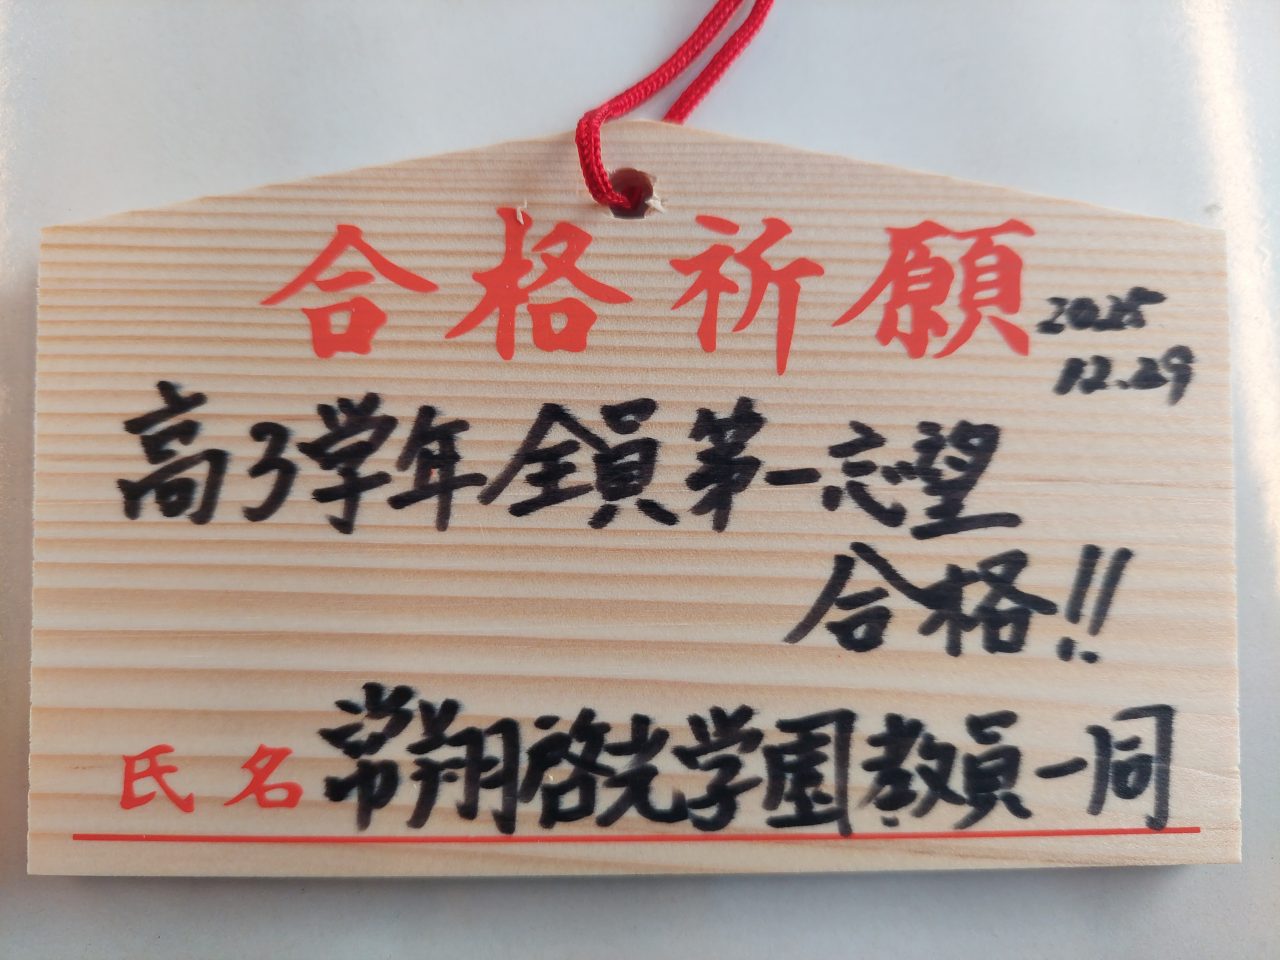 合格祈願
2025
12.29
高3学年全員第一志望
合格!!
氏名 常翔啓光学園教員一同